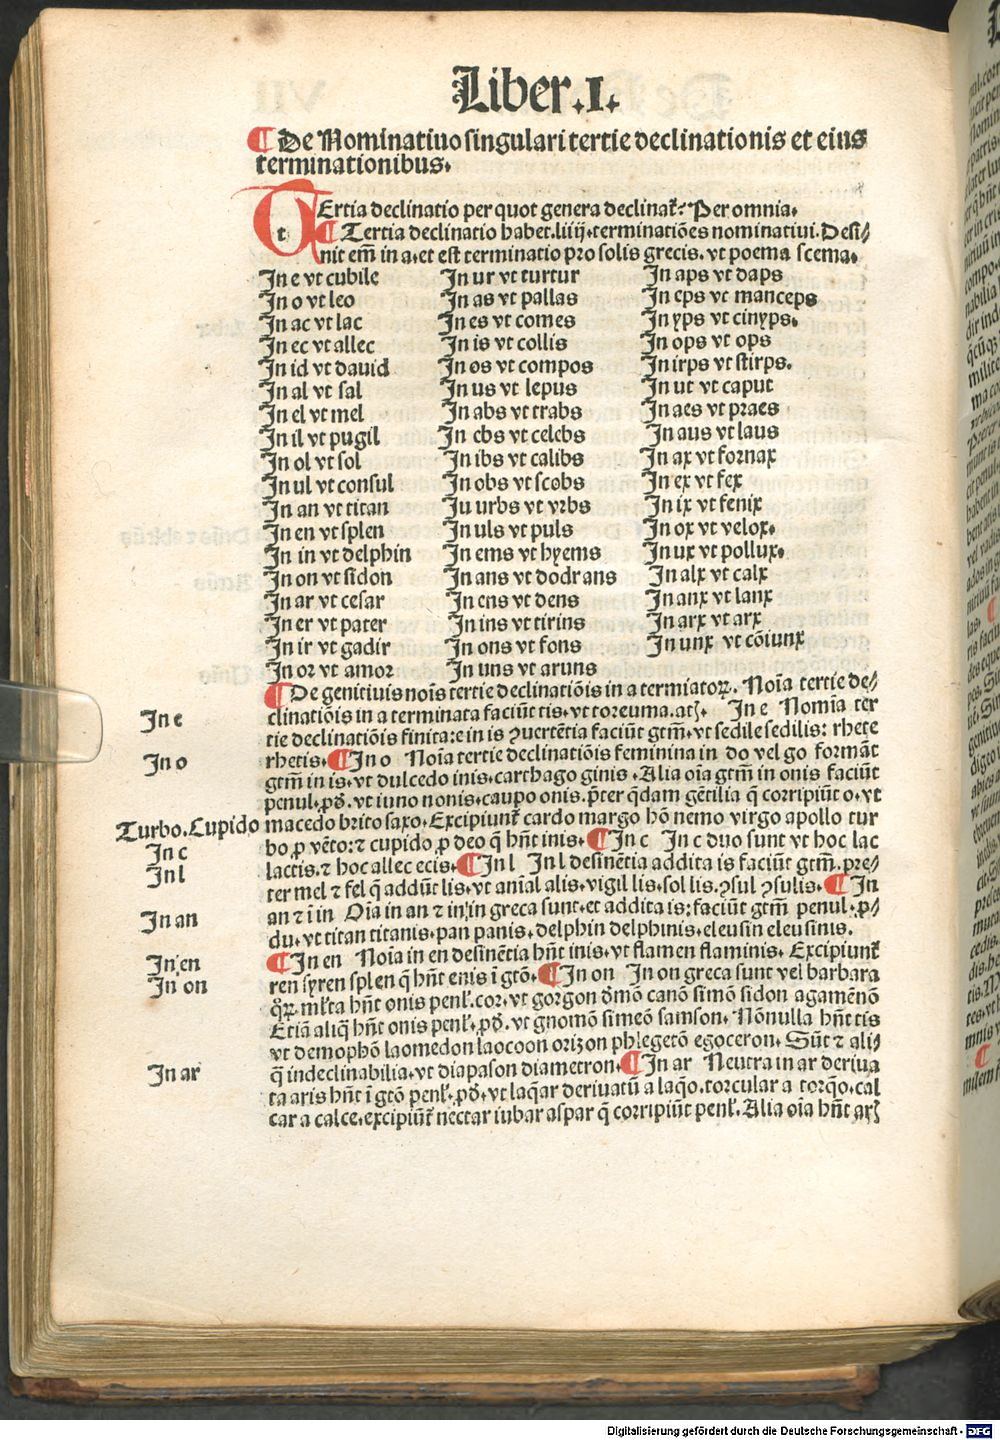 Liber.I.
¶ De Nominatiuo singulari tertie declinationis et eius
terminationibus.
TErtia declinatio per quot genera declinat̃? Per omnia.
t ¶ Tertia declinatio habet.liiij.terminatiões nominatiui. Desi/
nit em̃ in a.et est terminatio pro solis grecis. vt poema scema.
In e vt cubile
In o vt leo
In ac vt lac
In ec vt allec
In id vt dauid
In al vt sal
In el vt mel
In il vt pugil
In ol vt sol
In ul vt consul
In an vt titan
In en vt splen
In in vt delphin
In on vt sidon
In ar vt cesar
In er vt pater
In ir vt gadir
In or vt amor
In ur vt turtur
In as vt pallas
In es vt comes
In is vt collis
In os vt compos
In us vt lepus
In abs vt trabs
In ebs vt celebs
In ibs vt calibs
In obs vt scobs
Iu urbs vt vrbs
In uls vt puls
In ems vt hyems
In ans vt dodrans
In ens vt dens
In ins vt tirins
In ons vt fons
In uns vt aruns
In aps vt daps
In eps vt manceps
In yps vt cinyps.
In ops vt ops
In irps vt stirps.
In ut vt caput
In aes vt praes
In aus vt laus
In ax vt fornax
In ex vt fex
In ix vt fenix
In ox vt velox.
In ux vt pollux.
In alx vt calx
In anx vt lanx
In arx vt arx
In unx vt cõiunx
¶ De genitiuis noĩs tertie declinatiõis in a termiatoꝝ. Noĩa tertie de/
In e
clinatiõis in a terminata faciũt tis.vt toreuma.atꝭ. In e Nomĩa ter
tie declinatiõis finita:e in is ꝯuertẽtia faciũt gtm̃.vt sedile sedilis: rhete
In o
rhetis. ¶ In o Noĩa tertie declinatiõis feminina in do vel go formãt
gtm̃ in is.vt dulcedo inis.carthago ginis. Alia oĩa gtm̃ in onis faciũt
penul.ꝓd̃.vt iuno nonis.caupo onis.p̃ter q̃dam gẽtilia q̃ corripiũt o.vt
Turbo.Cupido
macedo brito saxo. Excipiunt̃ cardo margo hõ nemo virgo apollo tur
bo ꝓ vẽto:⁊ cupido ꝓ deo q̃ hñt inis. ¶ In c In c duo sunt vt hoc lac
In c
lactis.⁊ hoc allec ecis. ¶ In l In l desinẽtia addita is faciũt gtm̃.pre/
In l
ter mel ⁊ fel q̃ addũt lis.vt anĩal alis.vigil lis.sol lis.ꝯsul ꝯsulis. ¶ In
an ⁊ ĩ in Oĩa in an ⁊ in in greca sunt.et addita is:faciũt gtm̃ penul.ꝓ/
In an
du.vt titan titanis.pan panis.delphin delphinis.eleusin eleusinis.
In en
¶ In en Noĩa in en desinẽtia hñt inis.vt flamen flaminis. Excipiunt̃
In on
ren syren splen q̃ hñt enis ĩ gtõ. ¶ In on In on greca sunt vel barbara
q̃ꝝ.ml̃ta hñt onis penl̃.cor.vt gorgon dm̃o canõ simõ sidon agamẽnõ
Etiã aliq̃ hñt onis penl̃.ꝓd̃.vt gnomõ simeõ samson. Nõnulla hñt tis
vt demophõ laomedon laocoon orizon phlegetõ egoceron. Sũt ⁊ ali/
In ar
q̃ indeclinabilia.vt diapason diametron. ¶ In ar Neutra in ar deriua
ta aris hñt ĩ gtõ penl̃.ꝓd̃.vt laq̃ar deriuatũ a laq̃o.torcular a torq̃o.cal
car a calce.excipiũt̃ nectar iubar aspar q̃ corripiũt penl̃. Alia oĩa hñt arꝭ
Digitalisierung gefördert durch die Deutsche Forschungsgemeinschaft - DFG